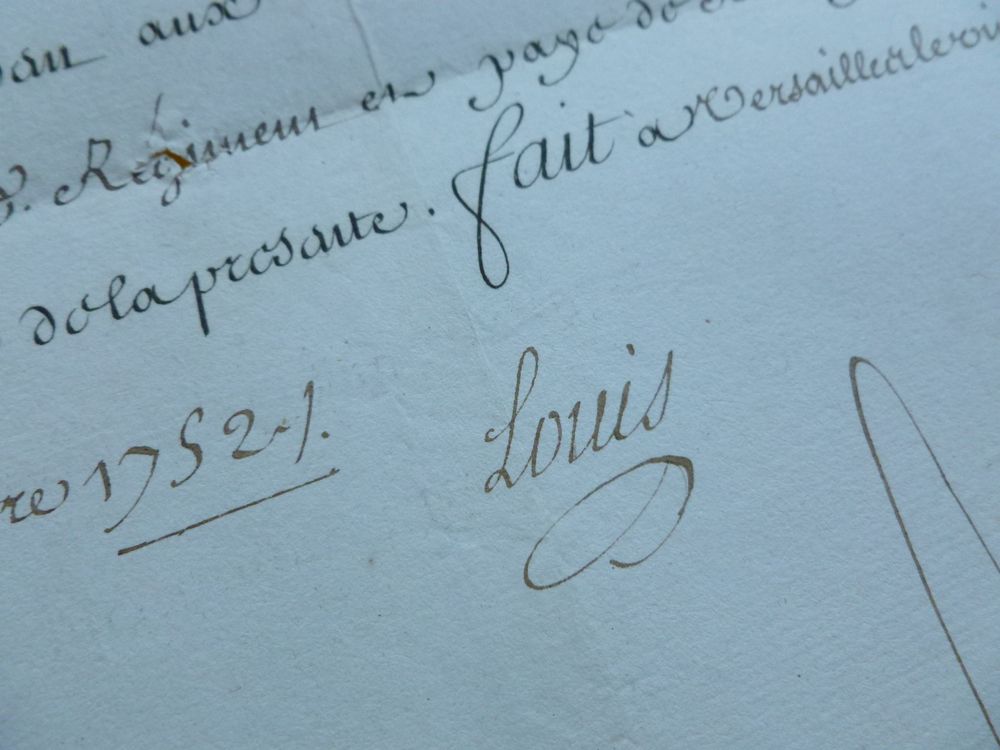 aux
Regiment en paye de
de la presante. fait a Versailles le
re 1752 ./.
Louis